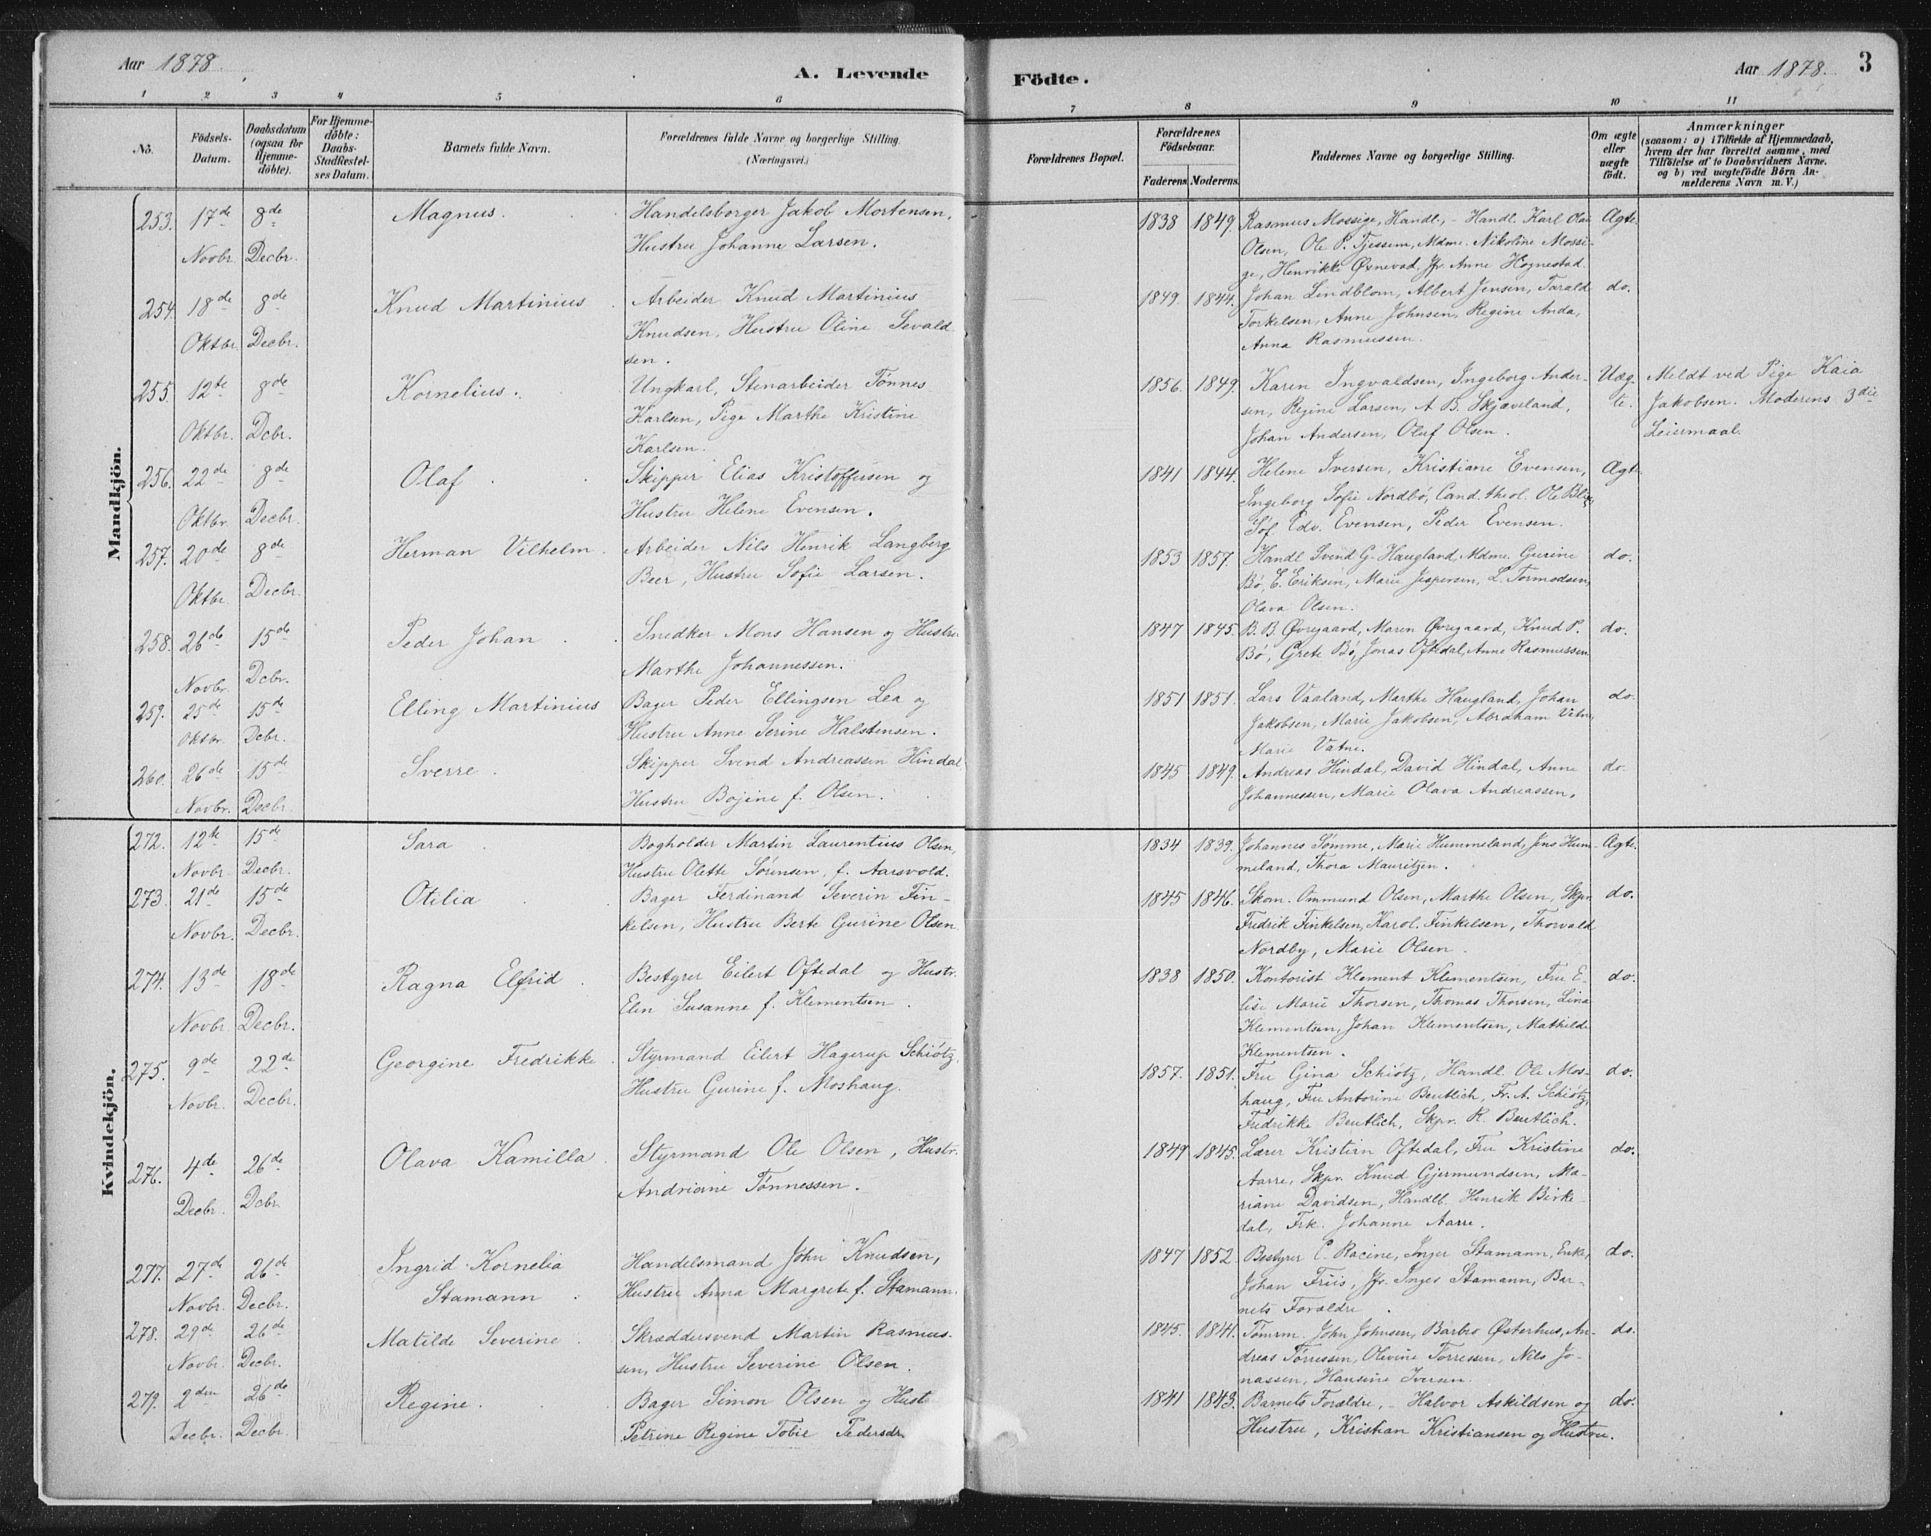 Aar 1878.
A. Levende
Födte.
Aar 1878.
3
1 2 3 4 5 6 7 8 9 10 11
No.
Födsels-Datum.
Daabsdatum (ogsaa for Hjemmedöbte).
For Hjemmedöbte: Daabs-Stadfæstelses Datum.
Barnets fulde Navn.
Forældrenes fulde Navne og borgerlige Stilling. (Næringsvei.)
Forældrenes Bopæl.
Forældrenes Födselsaar.
Faderens. Moderens.
Faddernes Navne og borgerlige Stilling.
Om ægte eller uægte födt.
Anmærkninger (saasom: a) i Tilfælde af Hjemmedaab, hvem der har forrettet samme, med Tilföielse af to Daabsvidners Navne. og b) ved uægtefödte Börn Anmelderens Navn m. V.)
Mandkjön.
253. 17de Novbr. 8de Decbr. Magnus.
Handelsborger Jakob Mortensen,
Hustru Johanne Larsen.
1838 1849. Rasmus Mossige, Handl., - Handl. Karl Olai
Olsen, Ole P. Tjessem, Mdme. Nikoline Mossi-
ge, Henrikke Øvnevad, Jfr Anne Hognestad.
Ægte.
254. 18de Oktbr. 8de Decbr. Knud Martinius
Arbeider Knud Martinius
Knudsen, Hustru Oline Sevald
sen.
1849. 1844. Johan Lindblom, Albert Jensen, Tarald
Torkelsen, Anne Johnsen, Regine Anda,
Anna Rasmussen.
do.
255. 12te Oktbr. 8de Dcbr. Kornelius.
Ungkarl, Stenarbeider Tønnes
Karlsen, Pige Marthe Kristine
Karlsen.
1856. 1849. Karen Ingvaldsen, Ingeborg Ander-
sen, Regine Larsen, A B. Skjæveland,
Johan Andersen, Oluf Olsen.
Uæg-
te.
Meldt ved Pige Kaia
Jakobsen. Moderens 3die
Leiermaal.
256. 22de Oktbr. 8de Decbr. Olaf
Skipper Elias Kristoffersen og
Hustru Helene Evensen.
1841 1844. Helene Iversen, Kristiane Evensen,
Ingeborg Sofie Nordbø, Cand. theol. Ole
Edv. Evensen, Peder Evensen.
Ægte
257. 20de Oktbr. 8de Decbr. Herman Vilhelm.
Arbeider Nils Henrik Langberg
Beer, Hustru Sofie Larsen.
1853 1857. Handl Svend G. Haugland, Mdme. Gurine
Bø, E. Eriksen, Marie Jespersen, L. Tormodsen,
Olava Olsen.
do.
258. 26de Novbr. 15de Dcbr. Peder Johan
Snedker Mons Hansen og Hustru
Marthe Johannessen.
1847 1845. B. B. Øvregaard, Maren Øvregaard, Knud P.
Bø, Grete Bø, Jonas Oftedal, Anne Rasmussen
do.
259. 25de Oktbr. 15de Dcbr. Elling Martinius
Bager Peder Ellingsen Lea og
Hustru Anne Serine Halstensen.
1851 1851. Lars Vaaland, Marthe Haugland, Johan
Jakobsen, Marie Jakobsen, Abraham Vatne,
Marie Vatne.
do
260. 26de Novbr. 15de Decbr. Sverre.
Skipper Svend Andreassen Hindal
Hustru Bojine f. Olsen.
1845 1849. Andreas Hindal, David Hindal, Anne
Johannessen, Marie Olava Andreassen.
do.
Kvindekjön.
272. 12te Novbr. 15de Decbr. Sara
Bogholder Martin Laurentius Olsen,
Hustru Olette Sørensen, f. Aarsvold.
1834 1839. Johannes Sømme, Marie Hummeland, Jens Hum-
meland, Thora Mauritzen.
Ægte.
273. 21de Novbr. 15de Decbr. Otilia
Bager Ferdinand Severin Fin-
kelsen, Hustru Berte Gurine Olsen
1845 1846. Skom. Ommund Olsen, Marthe Olsen, Skpr.
Fredrik Finkelsen, Karol. Finkelsen, Thorvald
Nordby, Marie Olsen.
do.
274. 13de Novbr. 18de Decbr. Ragna Elfrid
Bestyrer Eilert Oftedal og Hustr.
Elen Susanne f. Klementsen.
1838 1850. Kontorist Klement Klementsen, Fru E-
lise Marie Thorsen, Thomas Thorsen, Lina
Klementsen, Johan Klementsen, Mathilde
Klementsen.
do.
275. 9de Novbr. 22de Decbr. Georgine Fredrikke.
Styrmand Eilert Hagerup Schiøtz,
Hustru Gurine f. Moshaug.
1857. 1851. Fru Gina Schiøtz, Handl. Ole Mos-
haug, Fru Antorine Bentlich, Fr. A. Schiøtz,
Fredrikke Bentlich, Skpr. R. Bentlich.
do.
276. 4de Decbr. 26de Dcbr. Olava Kamilla.
Styrmand Ole Olsen, Hustr.
Andriane Tønnessen.
1849 1845. Lærer Kristirn Oftedal, Fru Kristine
Aarre, Skpr. Knud Gjermundsen, Ma-
riane Davidsen, Handlb. Henrik Birke-
dal, Frk. Johanne Aarre.
do.
277. 27de Novbr. 26de Decbr. Ingrid Kornelia
Stamann
Handelsmand John Knudsen,
Hustru Anna Margrete f. Stamann.
1847 1852. Bestyrer C. Racine, Inger Stamann, Enke,
Johan Friis, Jfr. Inger Stamann, Bar-
nets Forældre.
do.
278. 29de Novbr. 26de Decbr. Matilde Severine
Skræddersvend Martin Rasmus-
sen, Hustru Severine Olsen.
1845. 1841. Tømrm. John Johnsen, Barbro Østerhus, An-
dreas Tørressen, Olevine Tørressen, Nils Jo-
nassen, Hansine Iversen.
do.
279. 2den Decbr. 26de Decbr. Regine.
Bager Simon Olsen og Hust
Petrine Regine Tobie Pedersdr
1841 1843. Barnets Forældre, - Halvor Askildsen og
Hustru, Kristian Kristiansen og Hustru.
do.